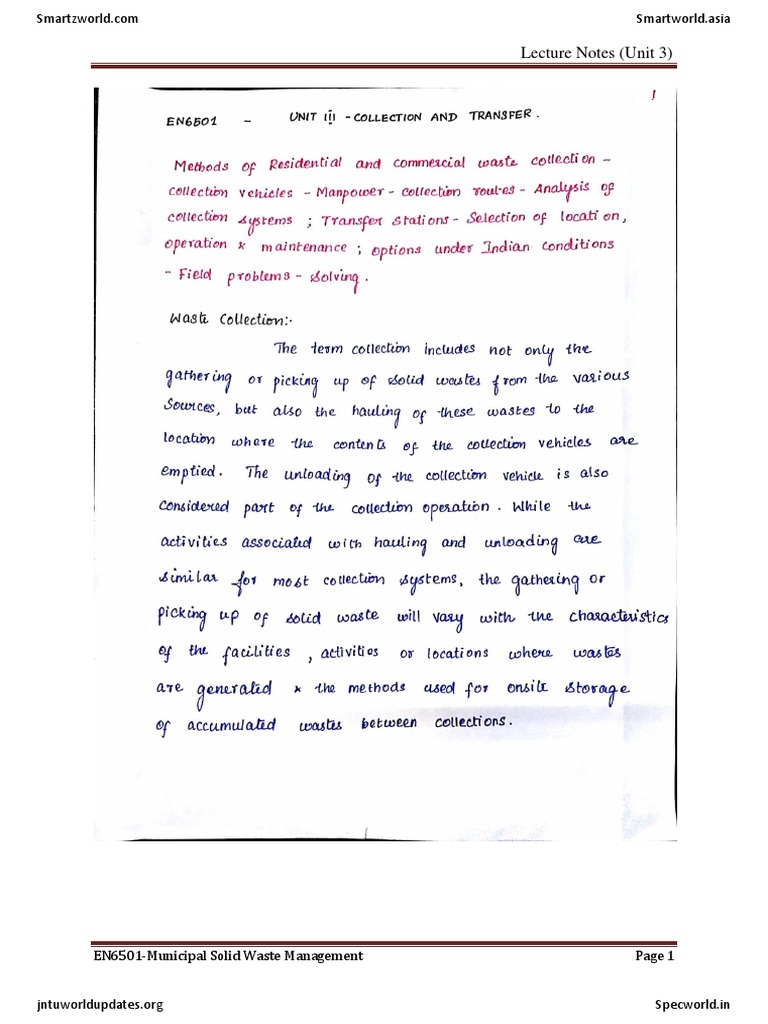 Smartzworld.com Smartworld.asia
Lecture Notes (Unit 3)
1
EN6501 - UNIT III - COLLECTION AND TRANSFER.
Methods of Residential and commercial waste collection -
collection vehicles - Manpower - collection routes - Analysis of
collection systems ; Transfer stations - Selection of location,
operation & maintenance ; options under Indian Conditions
- Field problems - solving.
Waste Collection:-
The term collection includes not only the
gathering or picking up of solid wastes from the various
Sources, but also the hauling of these wastes to the
location where the contents of the collection vehicles are
emptied. The unloading of the collection vehicle is also
considered part of the collection operation. While the
activities associated with hauling and unloading are
similar for most collection systems, the gathering or
picking up of solid waste will vary with the characteristics
of the facilities, activities or locations where wastes
are generated & the methods used for onsite storage
of accumulated wastes between collections.
EN6501-Municipal Solid Waste Management Page 1
jntuworldupdates.org Specworld.in